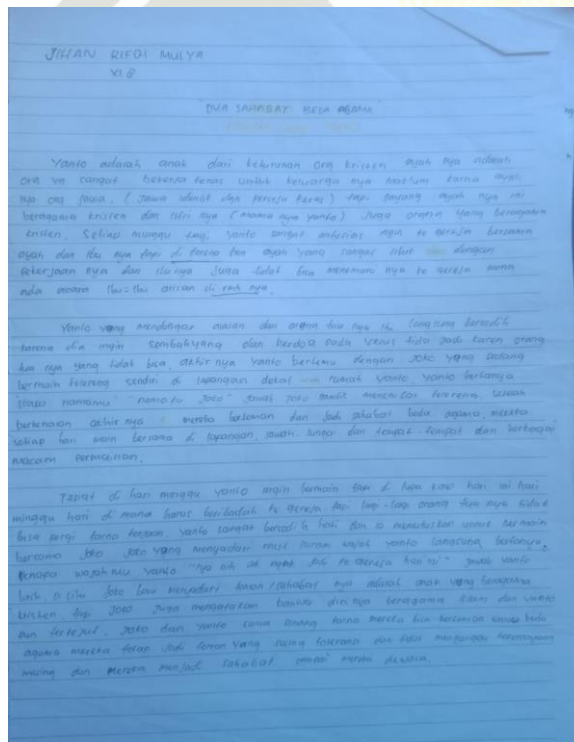 JIHAN RIFDI MULYA
XI.8
"DUA SAHABAT BEDA AGAMA"
Yanto adalah anak dari keturunan org kristen ayah nya adalah
org yg sangat bekerja keras untuk keluarga nya maklum karna ayah
nya org jawa, (jawa identik dgn pekerja keras) tapi sayang ayah nya ini
beragama kristen dan istri nya (mama nya yanto) juga orgnya yang beragama
kristen. Setiap minggu pagi, yanto sangat antusias ingin ke gereja bersama
ayah dan ibu nya tapi di karena kan ayah yang sangat sibuk dengan
pekerjaan nya dan ibu nya juga tidak bisa menemani nya ke gereja karna
ada acara ibu-ibu arisan di rmh nya.
Yanto yang mendengar alasan dari orang tua nya itu langsung bersedih
karena dia ingin sembahyang dan berdoa pada yesus tidak jadi karen orang
tua nya yang tidak bisa, akhir nya yanto bertemu dengan joko yang sedang
bermain kelereng sendiri di lapangan dekat rumah yanto, yanto bertanya
siapa namamu" "namaku joko" jawab joko sambil menentir kelereng, setelah
berkenalan akhir nya mereka berteman dan jadi sahabat beda agama, mereka
setiap hari main bersama di lapangan, sawah, sungai dan tempat-tempat dan berbagai
macam permainan.
Tepat di hari minggu yanto ingin bermain tapi di lupa kalo hari ini hari
minggu hari di mana harus beribadah ke gereja tapi lagi-lagi orang tua nya tidak
bisa pergi karna kerjaan, yanto sangat bersedih hati dan ia memutuskan untuk bermain
bersama joko joko yang menyadari muram wajah yanto langsung bertanya,
kenapa wajah mu yanto "iya nih ak nggak jadi ke gereja hari ini" jawab yanto
lirih, di situ joko baru menyadari teman/sahabat nya adalah anak yang beragama
kristen tapi joko juga mengatakan bahwa diri nya beragama islam dan yanto
pun terkejut. joko dan yanto sama senang karna mereka bisa berteman walau beda
agama mereka tetap jadi teman yang saling toleransi dan
masing dan mereka menjadi sahabat sampai mereka dewasa.